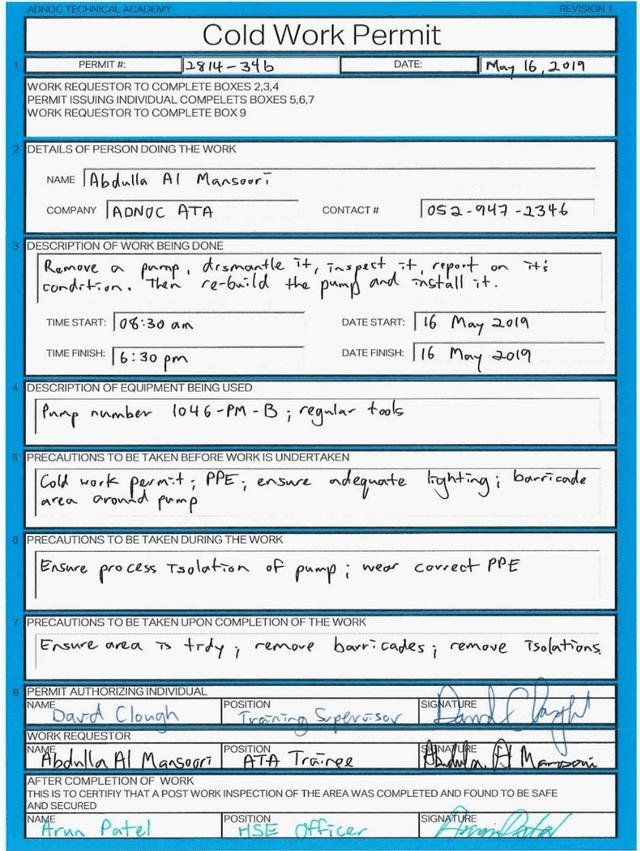 ADNOC TECHNICAL ACADEMY REVISION 1
Cold Work Permit
1 PERMIT #: 2814-34b DATE: May 16, 2019
WORK REQUESTOR TO COMPLETE BOXES 2,3,4
PERMIT ISSUING INDIVIDUAL COMPELETS BOXES 5,6,7
WORK REQUESTOR TO COMPLETE BOX 9
2 DETAILS OF PERSON DOING THE WORK
NAME Abdulla Al Mansoori
COMPANY ADNOC ATA CONTACT # 052-947-2346
3 DESCRIPTION OF WORK BEING DONE
Remove a pump, dismantle it, inspect it, report on it's
condition. Then re-build the pump and install it.
TIME START: 08:30 am DATE START: 16 May 2019
TIME FINISH: 6:30 pm DATE FINISH: 16 May 2019
4 DESCRIPTION OF EQUIPMENT BEING USED
Pump number 1046-PM-B; regular tools
5 PRECAUTIONS TO BE TAKEN BEFORE WORK IS UNDERTAKEN
Cold work permit; PPE; ensure adequate lighting; barricade
area around pump
6 PRECAUTIONS TO BE TAKEN DURING THE WORK
Ensure process isolation of pump; wear correct PPE
7 PRECAUTIONS TO BE TAKEN UPON COMPLETION OF THE WORK
Ensure area is tidy; remove barricades; remove isolations.
8 PERMIT AUTHORIZING INDIVIDUAL
NAME POSITION SIGNATURE
David Clough Training Supervisor David Clough
WORK REQUESTOR
NAME POSITION SIGNATURE
Abdulla Al Mansoori ATA Trainee Abdulla Al Mansoori
AFTER COMPLETION OF WORK
THIS IS TO CERTIFY THAT A POST WORK INSPECTION OF THE AREA WAS COMPLETED AND FOUND TO BE SAFE
AND SECURED
NAME POSITION SIGNATURE
Arun Patel HSE Officer Arun Patel